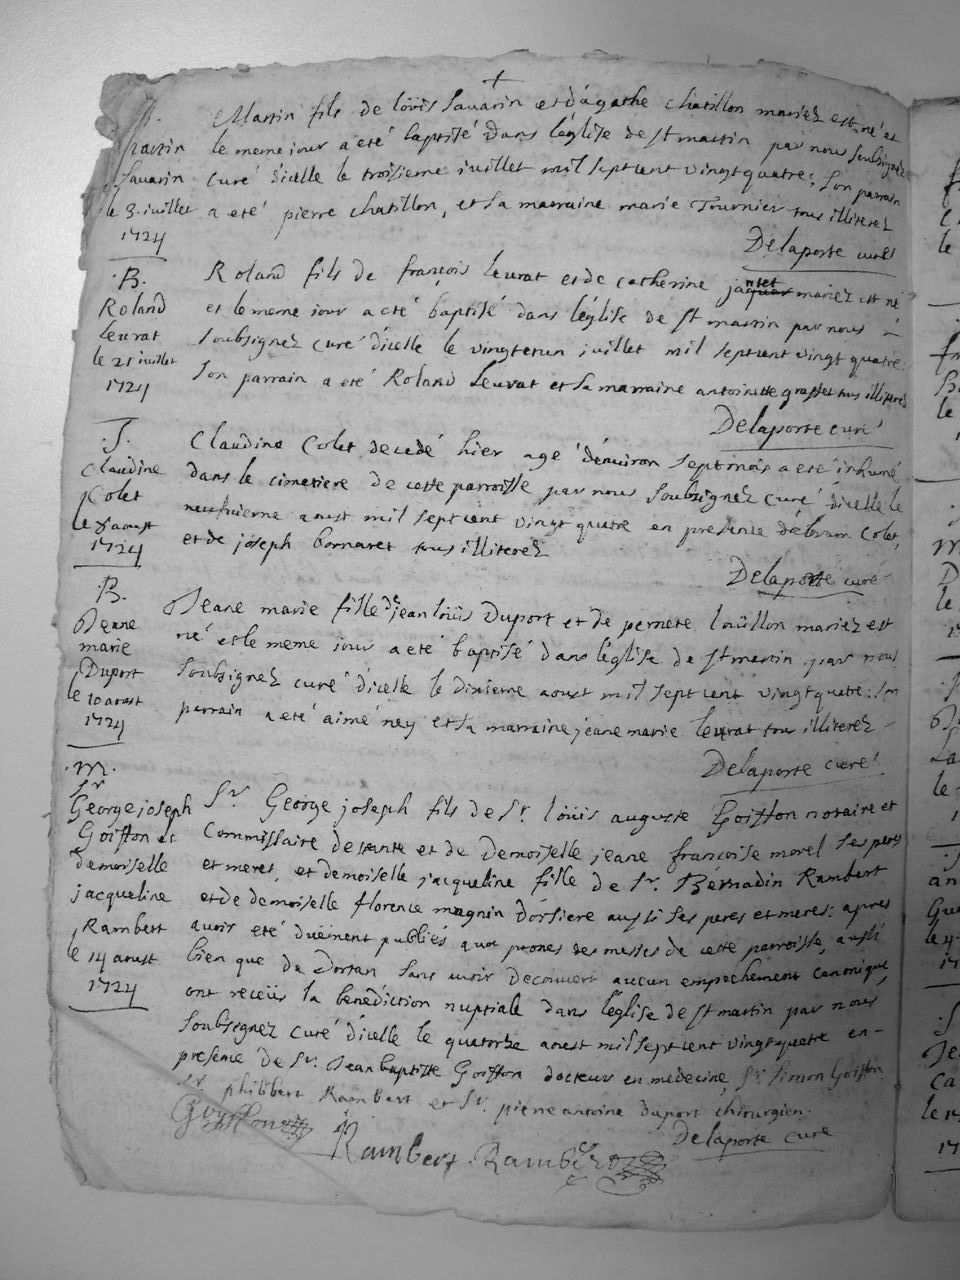 +
.B.
Martin
Savarin
le 3 juillet
1724
Martin fils de loüis Savarin et d'agathe chatillon mariez est né et
le meme iour a été baptisé dans l'église de st martin par nous soubsignez
curé d'icelle le troisieme iuillet mil sept cent vingt quatre; Son parrain
a eté pierre chatillon, et sa marraine marie Tournier tous illiterez
Delaporte curé
.B.
Roland
leurat
le 21 iuillet
1724
Roland fils de françois leurat et de catherine mariez est né
et le meme iour a eté baptisé dans l'église de st martin par nous
soubsignez curé d'icelle le vingt et un iuillet mil sept cent vingt quatre.
Son parrain a eté Roland leurat et sa marraine antoinette grosset tous illiterez
Delaporte curé
.S.
Claudine
Colet
le aoust
1724
Claudine Colet decedé hier agé d'enuiron sept mois a eté inhumé
dans le cimetiere de cette parroisse par nous soubsignez curé d'icelle le
neufuieme aoust mil sept cent vingt quatre en presence Colet,
et de joseph bornaret tous illiterez
Delaporte curé
.B.
Jeane
marie
Duport
le 10 aoust
1724
Jeane marie fille de jean loüis Duport et de pernete loüillon mariez est
né et le meme iour a eté baptisé dans l'église de st martin par nous
soubsignez curé d'icelle le dixieme aoust mil sept cent vingt quatre: son
parrain a eté aimé ney et sa marraine jeane marie leurat tous illiterez
Delaporte curé
.M.
Sr
George joseph
Goiffon et
demoiselle
jacqueline
Rambert
le 14 aoust
1724
Sr. George joseph fils de Sr. loüis auguste Goiffon notaire et
Commissaire et de Demoiselle jeane françoise morel ses peres
et meres, et demoiselle jacqueline fille de Sr. Bérnadin Rambert
et de demoiselle florence magnin d'orsiere aussi ses peres et meres: apres
auoir eté düement publiés aux prones des messes de cette parroisse, aussi
bien que de Dortan sans auoir decouuert aucun empechement canonique,
ont receüs la benediction nuptiale dans l'église de st martin par nous
soubsignez curé d'icelle le quatorze aoust mil sept cent vingt quatre en-
presence de Sr. Jean baptiste Goiffon docteur en medecine, Sr. Simon Goiffon
Sr. philibert Rambert et Sr. pierre antoine duport chirurgien.
Goyffon
Rambert Rambert
Delaporte curé